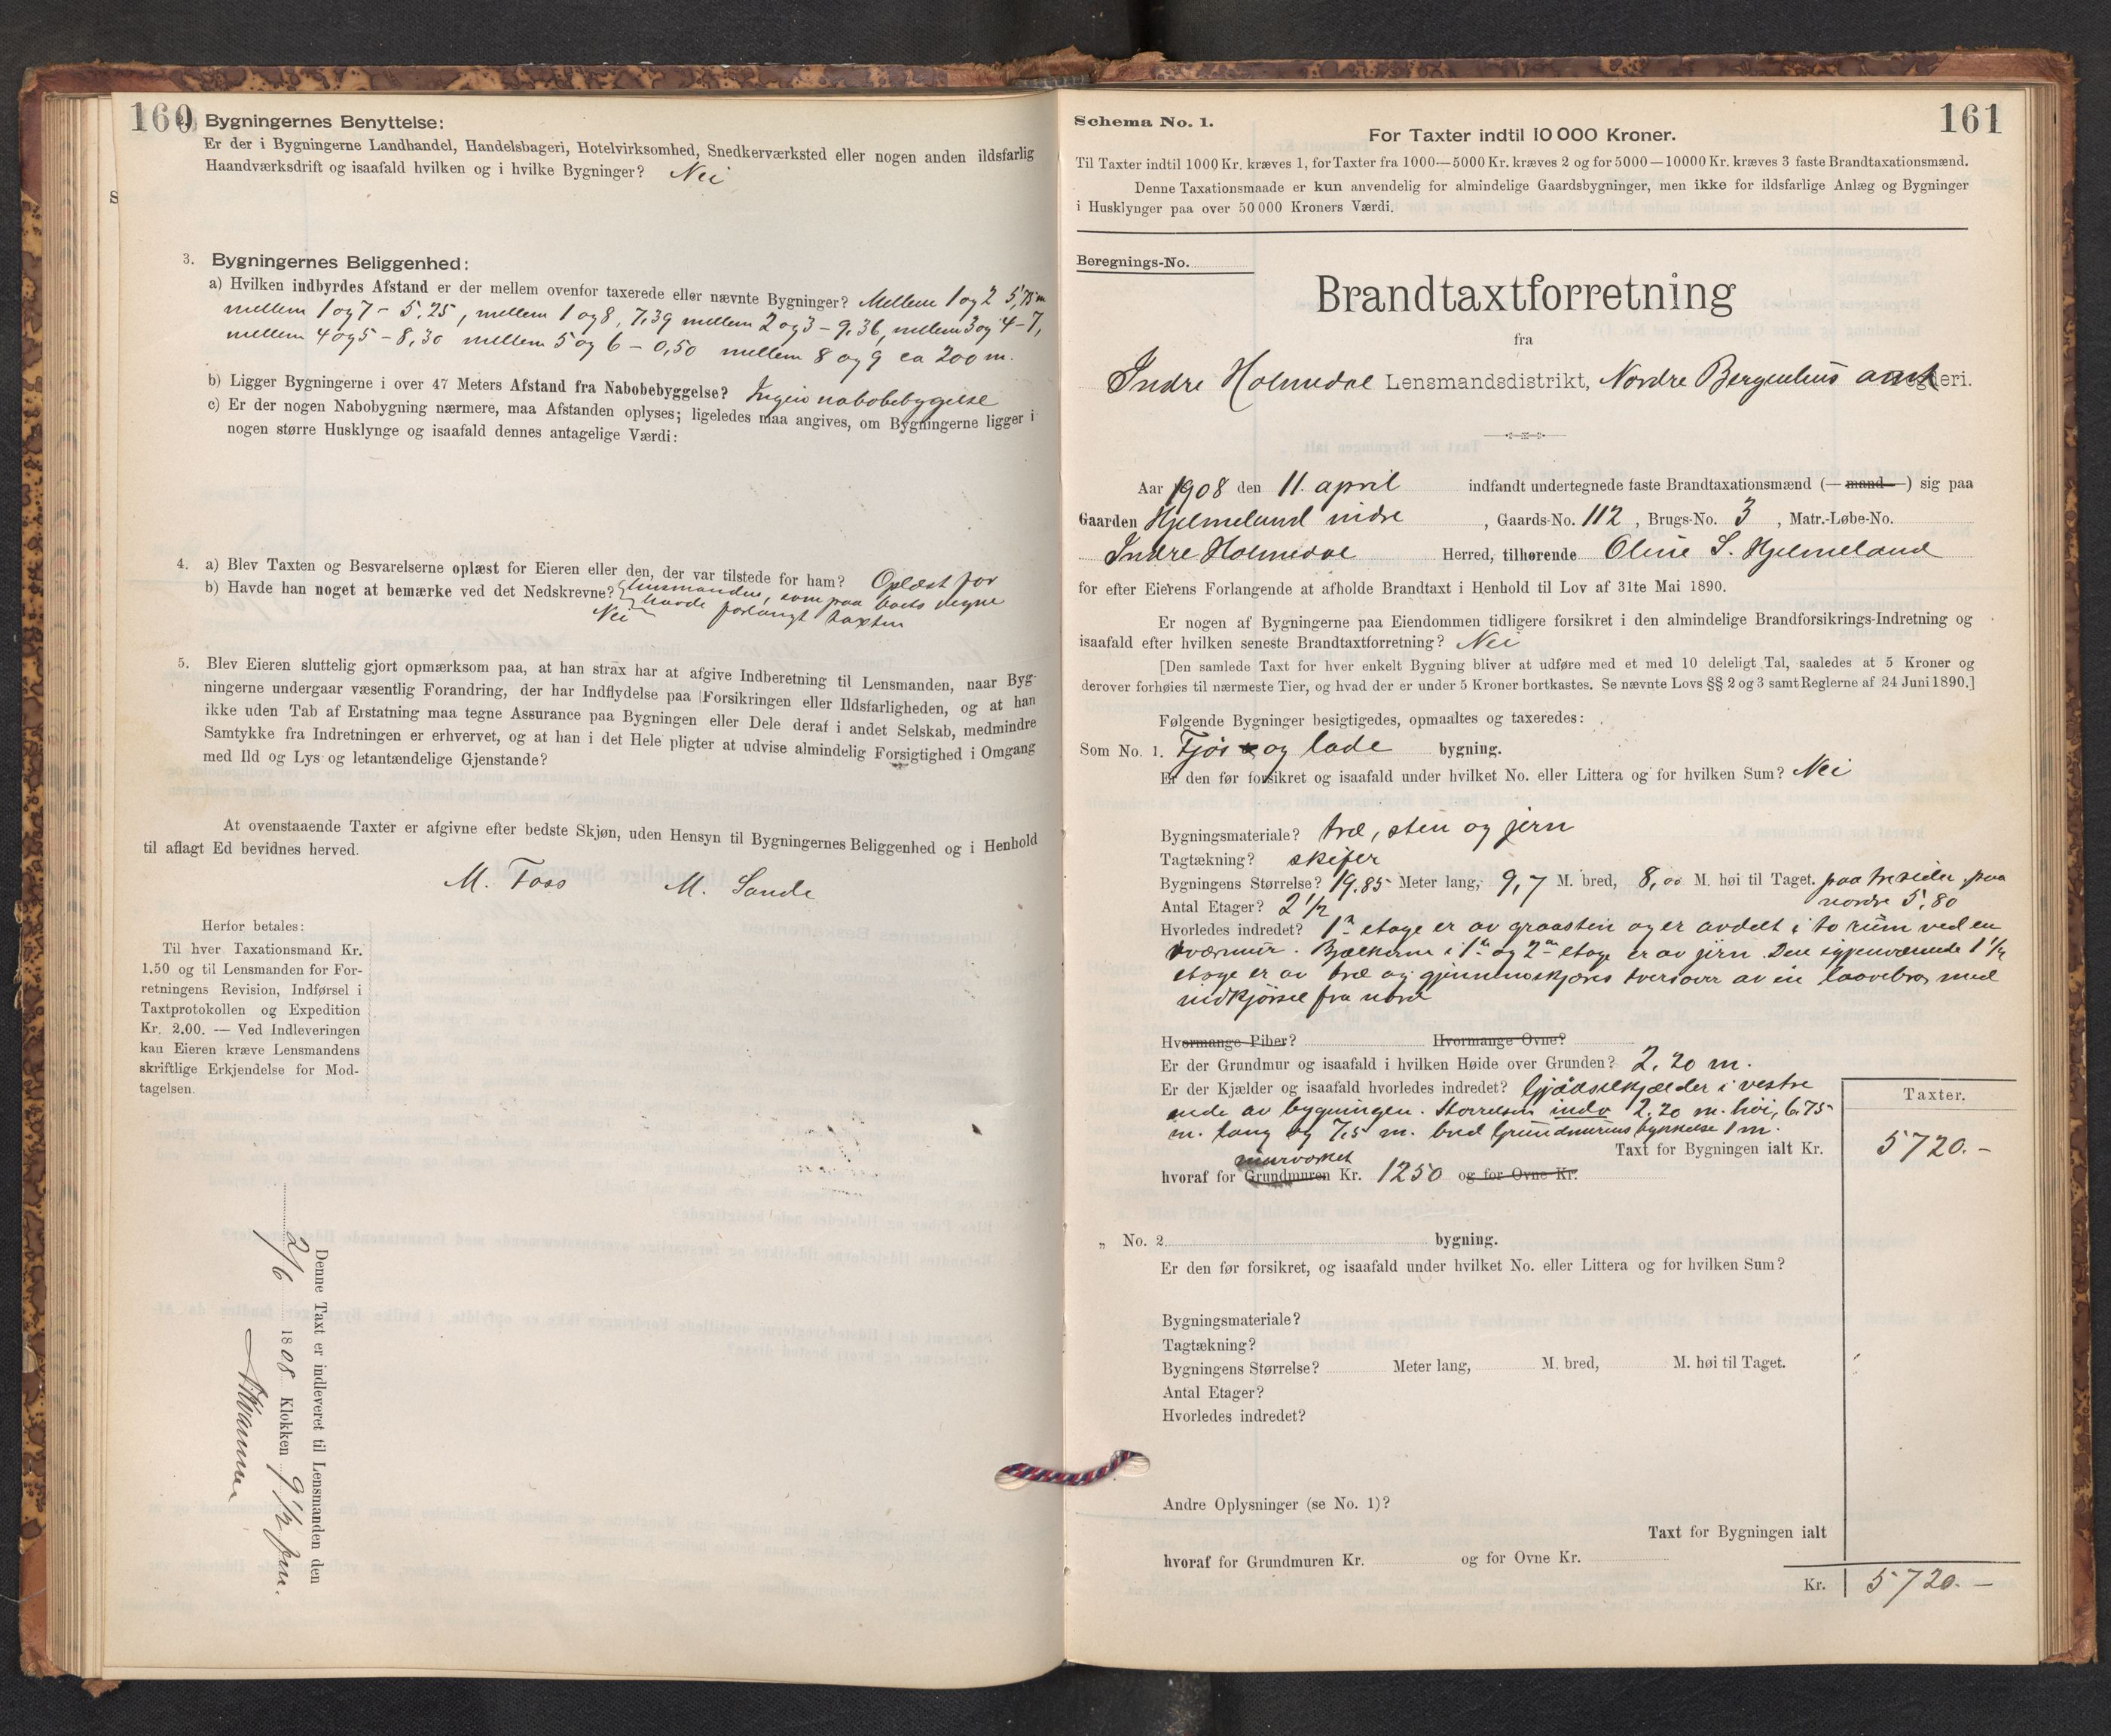 160
Bygningernes Benyttelse:
Er der i Bygningerne Landhandel, Handelsbageri, Hotelvirksomhed, Snedkerværksted eller nogen anden ildsfarlig
Haandværksdrift og isaafald hvilken og i hvilke Bygninger? Nei
3. Bygningernes Beliggenhed:
a) Hvilken indbyrdes Afstand er der mellem ovenfor taxerede eller nævnte Bygninger? Mellem 1 og 2 5,75 m
mellem 1 og 7 - 5,25, mellem 1 og 8, 7,39 mellem 2 og 3 - 9,36, mellem 3 og 4 - 7,
mellem 4 og 5 - 8,30 mellem 5 og 6 - 0,50 mellem 8 og 9 ca 200 m.
b) Ligger Bygningerne i over 47 Meters Afstand fra Nabobebyggelse? Ingen nabobebyggelse
c) Er der nogen Nabobygning nærmere, maa Afstanden oplyses; ligeledes maa angives, om Bygningerne ligger i
nogen større Husklynge og isaafald dennes antagelige Værdi:
4. a) Blev Taxten og Besvarelserne oplæst for Eieren eller den, der var tilstede for ham? Oplæst for
b) Havde han noget at bemærke ved det Nedskrevne? lensmanden, som paa boets vegne
Nei havde forlangt taxten
5. Blev Eieren sluttelig gjort opmærksom paa, at han strax har at afgive Indberetning til Lensmanden, naar Byg-
ningerne undergaar væsentlig Forandring, der har Indflydelse paa Forsikringen eller Ildsfarligheden, og at han
ikke uden Tab af Erstatning maa tegne Assurance paa Bygningen eller Dele deraf i andet Selskab, medmindre
Samtykke fra Indretningen er erhvervet, og at han i det Hele pligter at udvise almindelig Forsigtighed i Omgang
med Ild og Lys og letantændelige Gjenstande?
At ovenstaaende Taxter er afgivne efter bedste Skjøn, uden Hensyn til Bygningernes Beliggenhed og i Henhold
til aflagt Ed bevidnes herved.
M. Foss M. Sande
Herfor betales:
Til hver Taxationsmand Kr.
1.50 og til Lensmanden for For-
retningens Revision, Indførsel i
Taxtprotokollen og Expedition
Kr. 2.00. — Ved Indleveringen
kan Eieren kræve Lensmandens
skriftlige Erkjendelse for Mod-
tagelsen.
Denne Taxt er indleveret til Lensmanden den
2/6 1808 Klokken 9 1/2 fm.
161
Schema No. 1.
For Taxter indtil 10 000 Kroner.
Til Taxter indtil 1000 Kr. kræves 1, for Taxter fra 1000—5000 Kr. kræves 2 og for 5000—10000 Kr. kræves 3 faste Brandtaxationsmænd.
Denne Taxationsmaade er kun anvendelig for almindelige Gaardsbygninger, men ikke for ildsfarlige Anlæg og Bygninger
i Husklynger paa over 50 000 Kroners Værdi.
Beregnings-No.
Brandtaxtforretning
fra
Indre Holmedal Lensmandsdistrikt, Nordre Bergenhus amt
Aar 1908 den 11. april indfandt undertegnede faste Brandtaxationsmænd (— mand —) sig paa
Gaarden Hjelmeland indre, Gaards-No. 112, Brugs-No. 3, Matr.-Løbe-No.
Indre Holmedal Herred, tilhørende Oline S. Hjelmeland
for efter Eierens Forlangende at afholde Brandtaxt i Henhold til Lov af 31te Mai 1890.
Er nogen af Bygningerne paa Eiendommen tidligere forsikret i den almindelige Brandforsikrings-Indretning og
isaafald efter hvilken seneste Brandtaxtforretning? Nei
[Den samlede Taxt for hver enkelt Bygning bliver at udføre med et med 10 deleligt Tal, saaledes at 5 Kroner og
derover forhøies til nærmeste Tier, og hvad der er under 5 Kroner bortkastes. Se nævnte Lovs §§ 2 og 3 samt Reglerne af 24 Juni 1890.]
Følgende Bygninger besigtigedes, opmaaltes og taxeredes:
Som No. 1. Fjøs og lade bygning.
Er den før forsikret og isaafald under hvilket No. eller Littera og for hvilken Sum? Nei
Bygningsmateriale? træ, sten og jern
Tagtækning? skifer
Bygningens Størrelse? 19,85 Meter lang, 9,7 M. bred, 8,00 M. høi til Taget. paa tre sider, paa
nordre 5,80
Antal Etager? 2 1/2
Hvorledes indredet? 1ste etage er av graasten og er avdelt i to rum ved en
tværmur. Bjelkerne i 1ste og 2den etage er av jern. Den igjenværende 1 1/2
etage er av træ og gjennemskjæres tversover av en laavebro, med
indkjørsel fra nord
Hvormange Piber? Hvormange Ovne?
Er der Grundmur og isaafald i hvilken Høide over Grunden? 2,20 m.
Er der Kjælder og isaafald hvorledes indredet? Gjødselkjælder i vestre
ende av bygningen. Størrelsen indv 2,20 m. høi, 6,75
m. lang og 7,5 m. bred Grundmurens tykkelse 1 m.
Taxter.
Taxt for Bygningen ialt Kr. 5720.-
murverket
hvoraf for Grundmuren Kr. 1250 og for Ovne Kr.
„ No. 2 bygning.
Er den før forsikret, og isaafald under hvilket No. eller Littera og for hvilken Sum?
Bygningsmateriale?
Tagtækning?
Bygningens Størrelse? Meter lang, M. bred, M. høi til Taget.
Antal Etager?
Hvorledes indredet?
Andre Oplysninger (se No. 1)?
Taxt for Bygningen ialt
hvoraf for Grundmuren Kr. og for Ovne Kr.
Kr. 5720.-